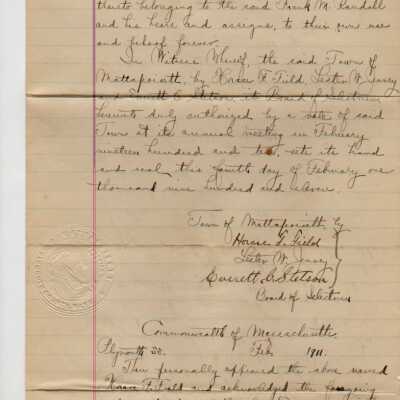 thereto belonging to the said Frank M. Randall
and his heirs and assigns, to their own use
and behoof forever.
In Witness Whereof, the said Town of
Mattapoisett, by Horace F. Field, Lester W. Jenney
and Everett C. Stetson, its Board of Selectmen
hereunto duly authorized by a vote of said
Town at its annual meeting in February
nineteen hundred and ten, sets its hand
and seal this fourth day of February one
thousand nine hundred and eleven.
Town of Mattapoisett by
Horace F. Field
Lester W. Jenney
Everett C. Stetson
Board of Selectmen
Commonwealth of Massachusetts.
Plymouth SS. Feb. 1911.
Then personally appeared the above named
and acknowledged the foregoing